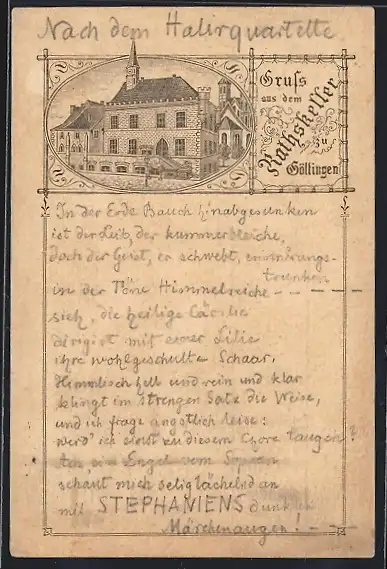 Nach dem Halirquartette
Gruss
aus dem
Rathskeller
zu
Göttingen
In der Erde Bauch hinabgesunken
ist der Leib, der kummerbleiche,
doch der Geist, er schwebt, erinnerungs-
trunken
in der Töne Himmelreiche — — — —
sieh, die heilige Cäcilie
dirigirt mit einer Lilie
ihre wohlgeschulte Schaar.
Himmlisch hell und rein und klar
klingt im strengen Satz die Weise,
und ich frage ängstlich leise:
werd' ich einst zu diesem Chore taugen?
ein Engel vom Sopran
schaut mich selig lächelnd an
mit STEPHANIENS dunklen
Märchenaugen! — —